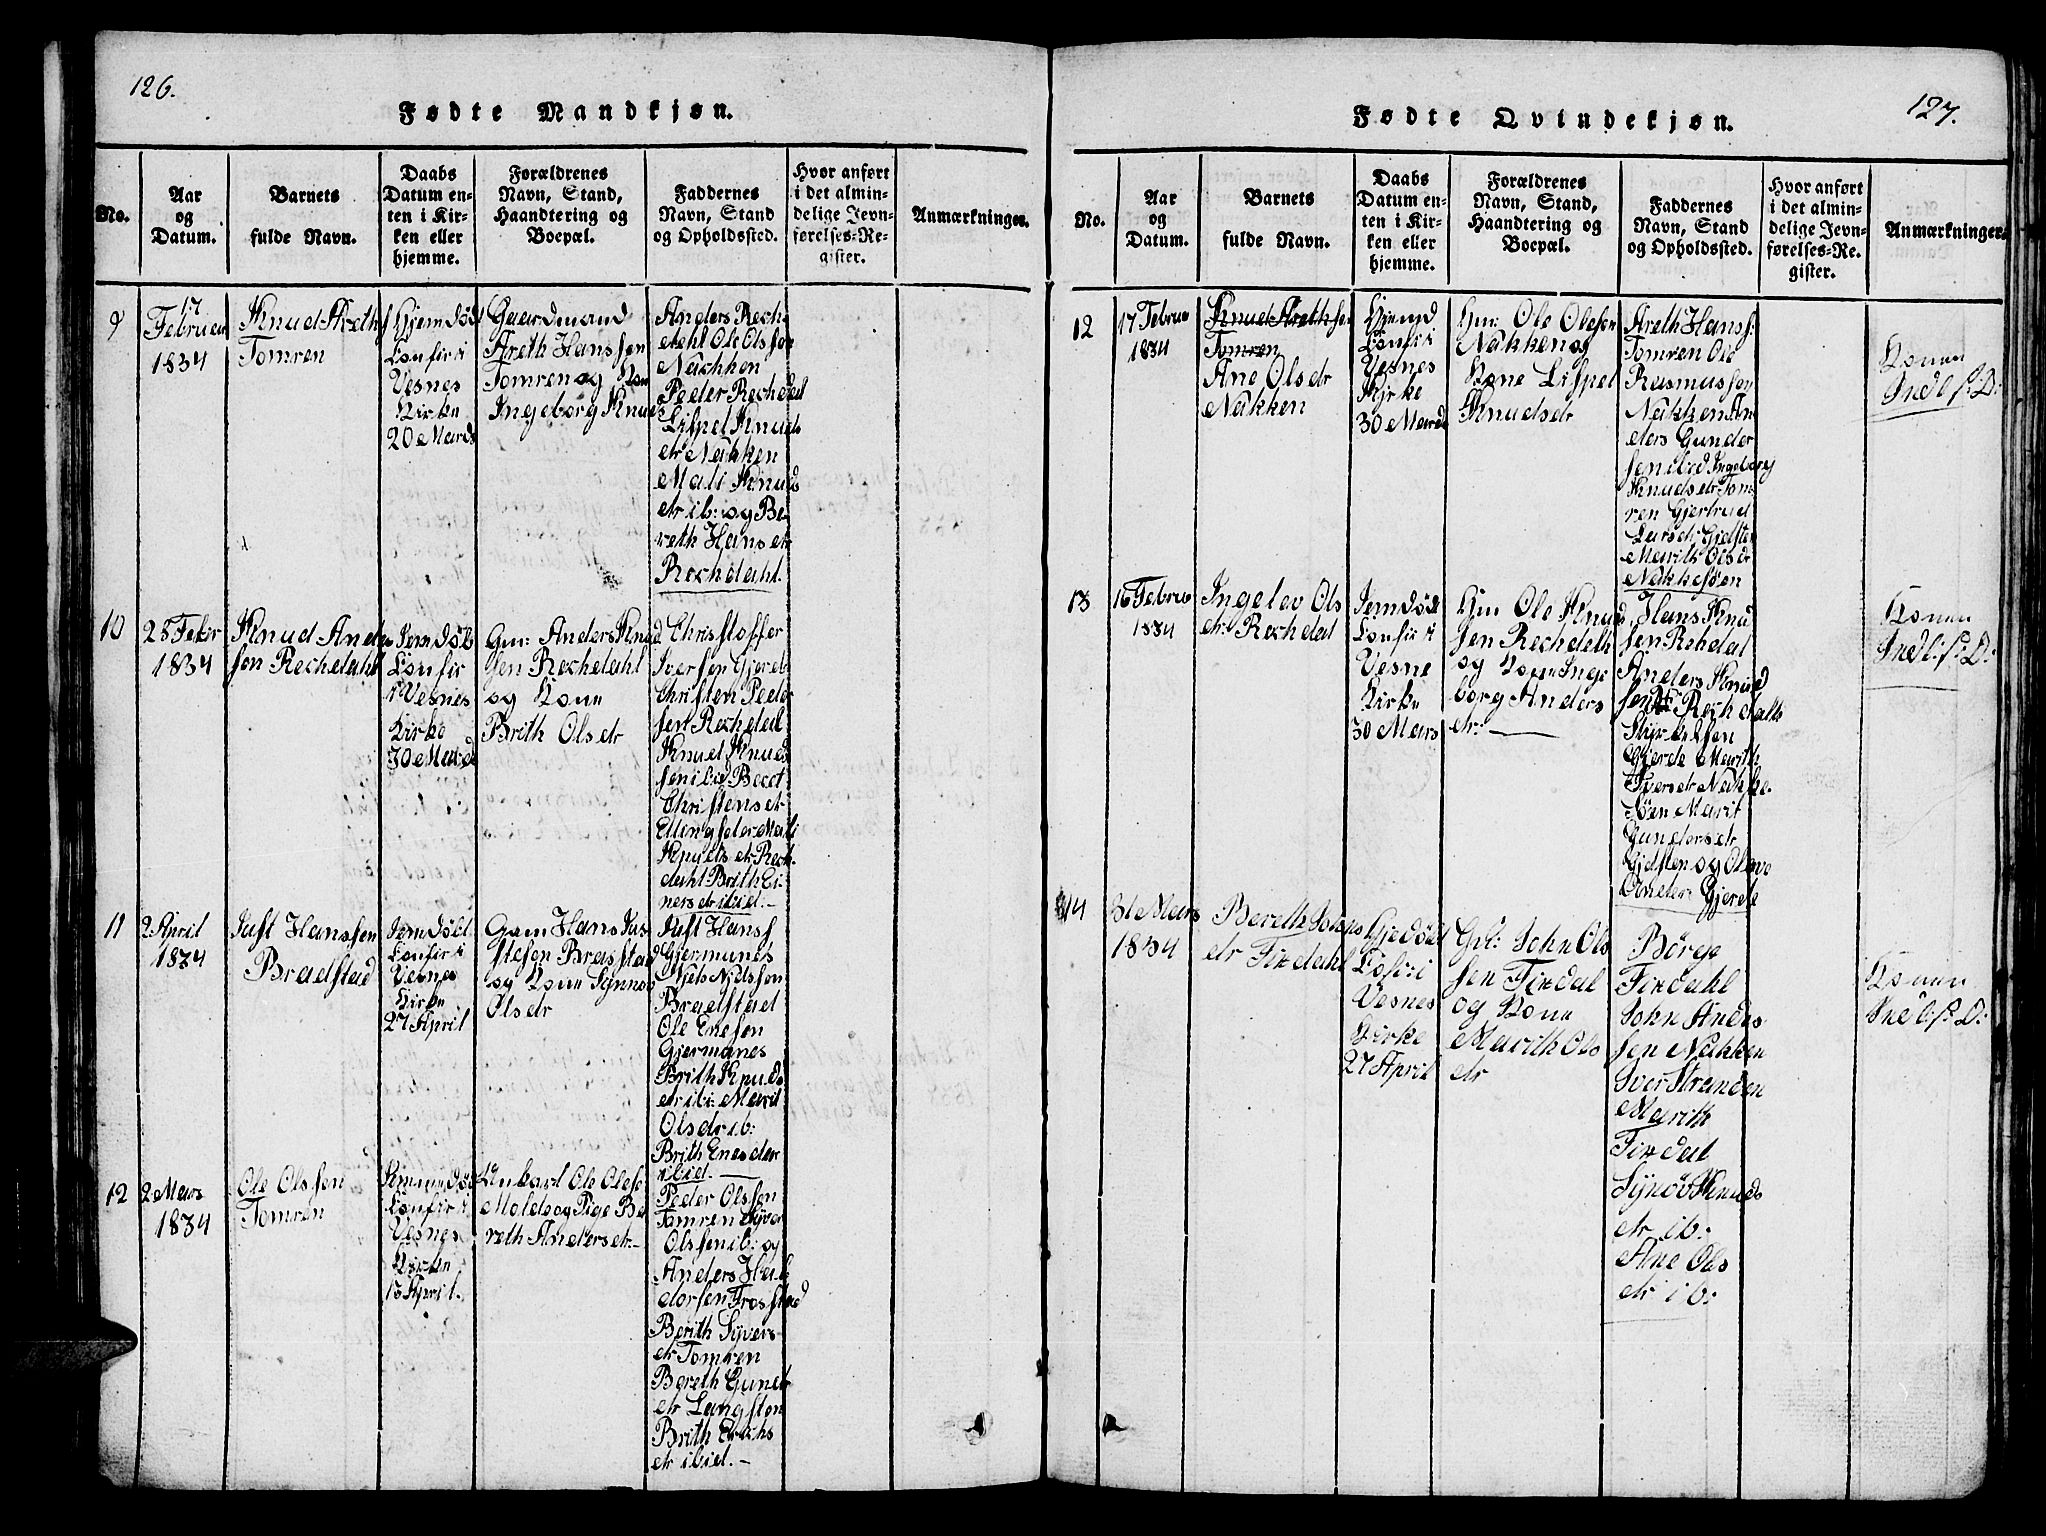 126.
Fødte Mandkjøn.
No.
Aar
og
Datum.
Barnets
fulde Navn.
Daabs
Datum en-
ten i Kir-
ken eller
hjemme.
Forældrenes
Navn, Stand,
Haandtering og
Boepæl.
Faddernes
Navn, Stand
og Opholdssted.
Hvor anført
i det almin-
delige Jevn-
førelses-Re-
gister.
Anmærkninger.
9
17
Februar
1834
Knud Areths
Tomren
Hjemdøbt
Confir i
Vesnes
Kirke
20 Mards
Gaardmand
Areth Hanssen
Tomren og Kone
Ingeborg Knuds
Anders Rech-
dahl Ole Olssen
Nachken
Peder Rechdal
Lispet Knuds
dr Nakken
Mali Knuds
dr ib: og Be-
reth Hansdr
Rechdahl.
10
28 Febr
1834
Knud Anders
sen Rechedahl
Jemdøbt
Confir
i Vesnes
Kirke
30 Mards
Gm: Anders Knud
sen Rechedahl
og Kone
Brith Olsdr
Christoffer
Iversen Gjerde
Christen Peder
sen Rechedal
Knud Knuds
sen ibid. Beret
Christensdr
Ellingsæter Mali
Knudsdr Rech-
dahl Brith Ei-
nersdr ibid. –
11
2 April
1834
Just Hanssen
Bradstad
Jemdøbt
Confir i
Vesnes
Kirke
27 April
Gam Hans Jus
stesen Brasstad
og Kone Synnøv
Olsdr
Just Hanss
Gjermunes
Niels Nidssen
Bradstad
Ole Enesen
Gjermanes
Brith Knuds
dr ib: Marit
Olsdr ib:
Brith Enesdr
ibid. –
12
2 Mars
1834
Ole Olssen
Tomren
Confir i
Vesnes
Kirke
13 April.
Unkarl Ole Olese
Molde og Pige Be
reth Andersdr –
Peder Olssen
Tomren Syver
Olssen ib: og
Anders Hal-
dorsen Frosstad
Berith Syvers-
dr Tomren
Bereth Guner
dr Langsten
Brith Erichs
dr ibid. –
127.
Fødte Qvindekjøn.
No.
Aar
og
Datum.
Barnets
fulde Navn.
Daabs
Datum en-
ten i Kir-
ken eller
hjemme.
Forældrenes
Navn, Stand,
Haandtering og
Boepæl.
Faddernes
Navn, Stand
og Opholdssted.
Hvor anført
i det almin-
delige Jevn-
førelses-Re-
gister.
Anmærkninger.
12
17 Februa
1834
Knud Arethsen
Tomren
Ane Olsdr
Nakken
Hjemd
Confir i
Vesnes
Kirke
30 Mards
Hm: Ole Olesen
Nakken og
Kone Lispet
Knudsdr
Areth Hanss:
Tomren Ole
Rasmussen
Nakken An-
ders Gunder
sen ibid Ingeborg
Knudsdr Tom-
ren Gjertrud
Larsdr Gjelsten
Marith Olsdr
Nakkesøen
Konen
Indl: s: D:
13
16 Februa
1834
Ingelev Ols
dr: Rechdal
Jemdøbt
Confir i
Vesne
Kirke
30 Mars
Hm Ole Knud
sen Rechdalh
og Kone Inge
borg Anders
dr: –
Hans Knu
sen Rehdal
Anders Knud
sen Rechdalls
Gjerde Marith
Iversdr Nakke-
søen Marit
Gundersdr
Gjelsten og
Gjerde
Konen
Indl: s: D:
14
31 Mars
1834
Bereth Johns
dr Fixdahl
Hjedøbt
Cofir i
Vesnes
Kirke
27 April
Gbr: John Ols
sen Fixdal
og Kone
Marith Ols
dr
Børge
Fixdahl
John Anders
sen Nakken
Iver Stranden
Marith
Fixdal
Synøv Knuds
dr ib:
Ane Ols
dr ib:
Konen
Indl: s: D: